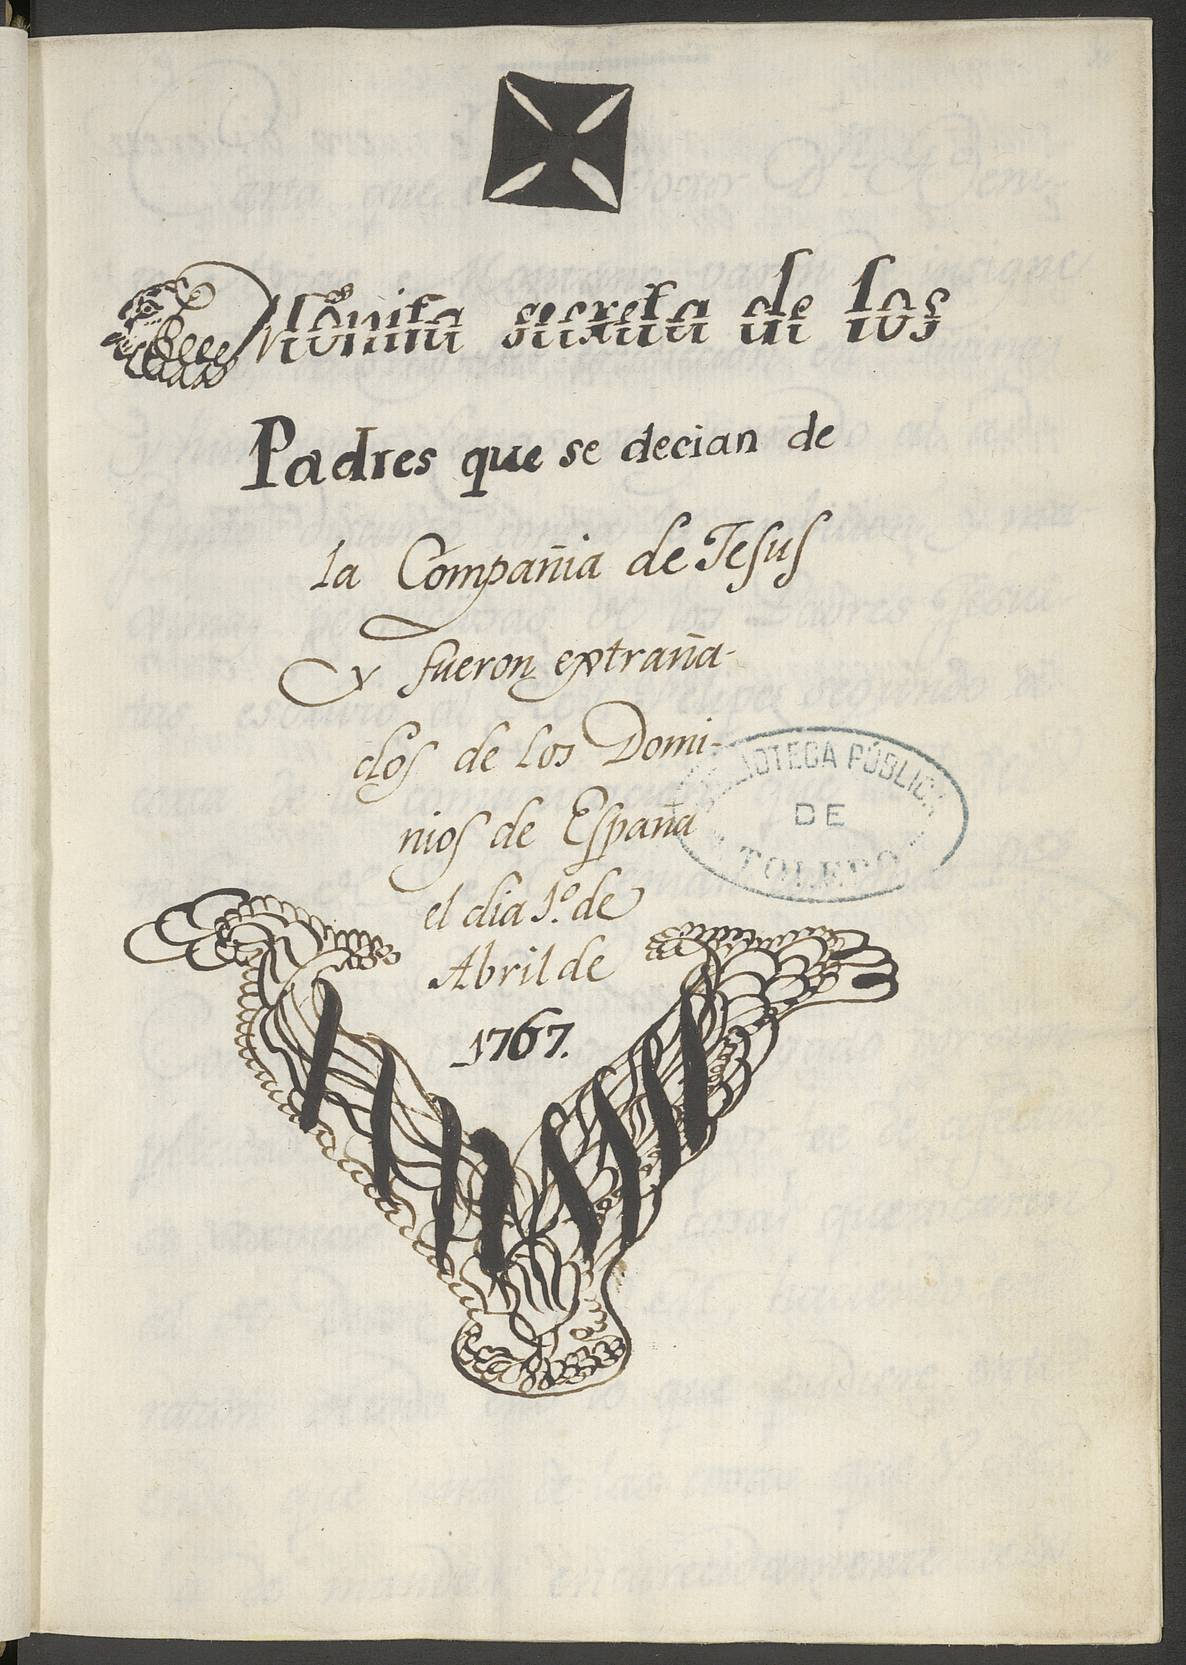 Mónita secreta de los
Padres que se decian de
la Compañia de Jesus
y fueron extraña-
dos de los Domi-
nios de España
el dia 1.º de
Abril de
1767.
BIBLIOTECA PÚBLICA
DE
TOLEDO